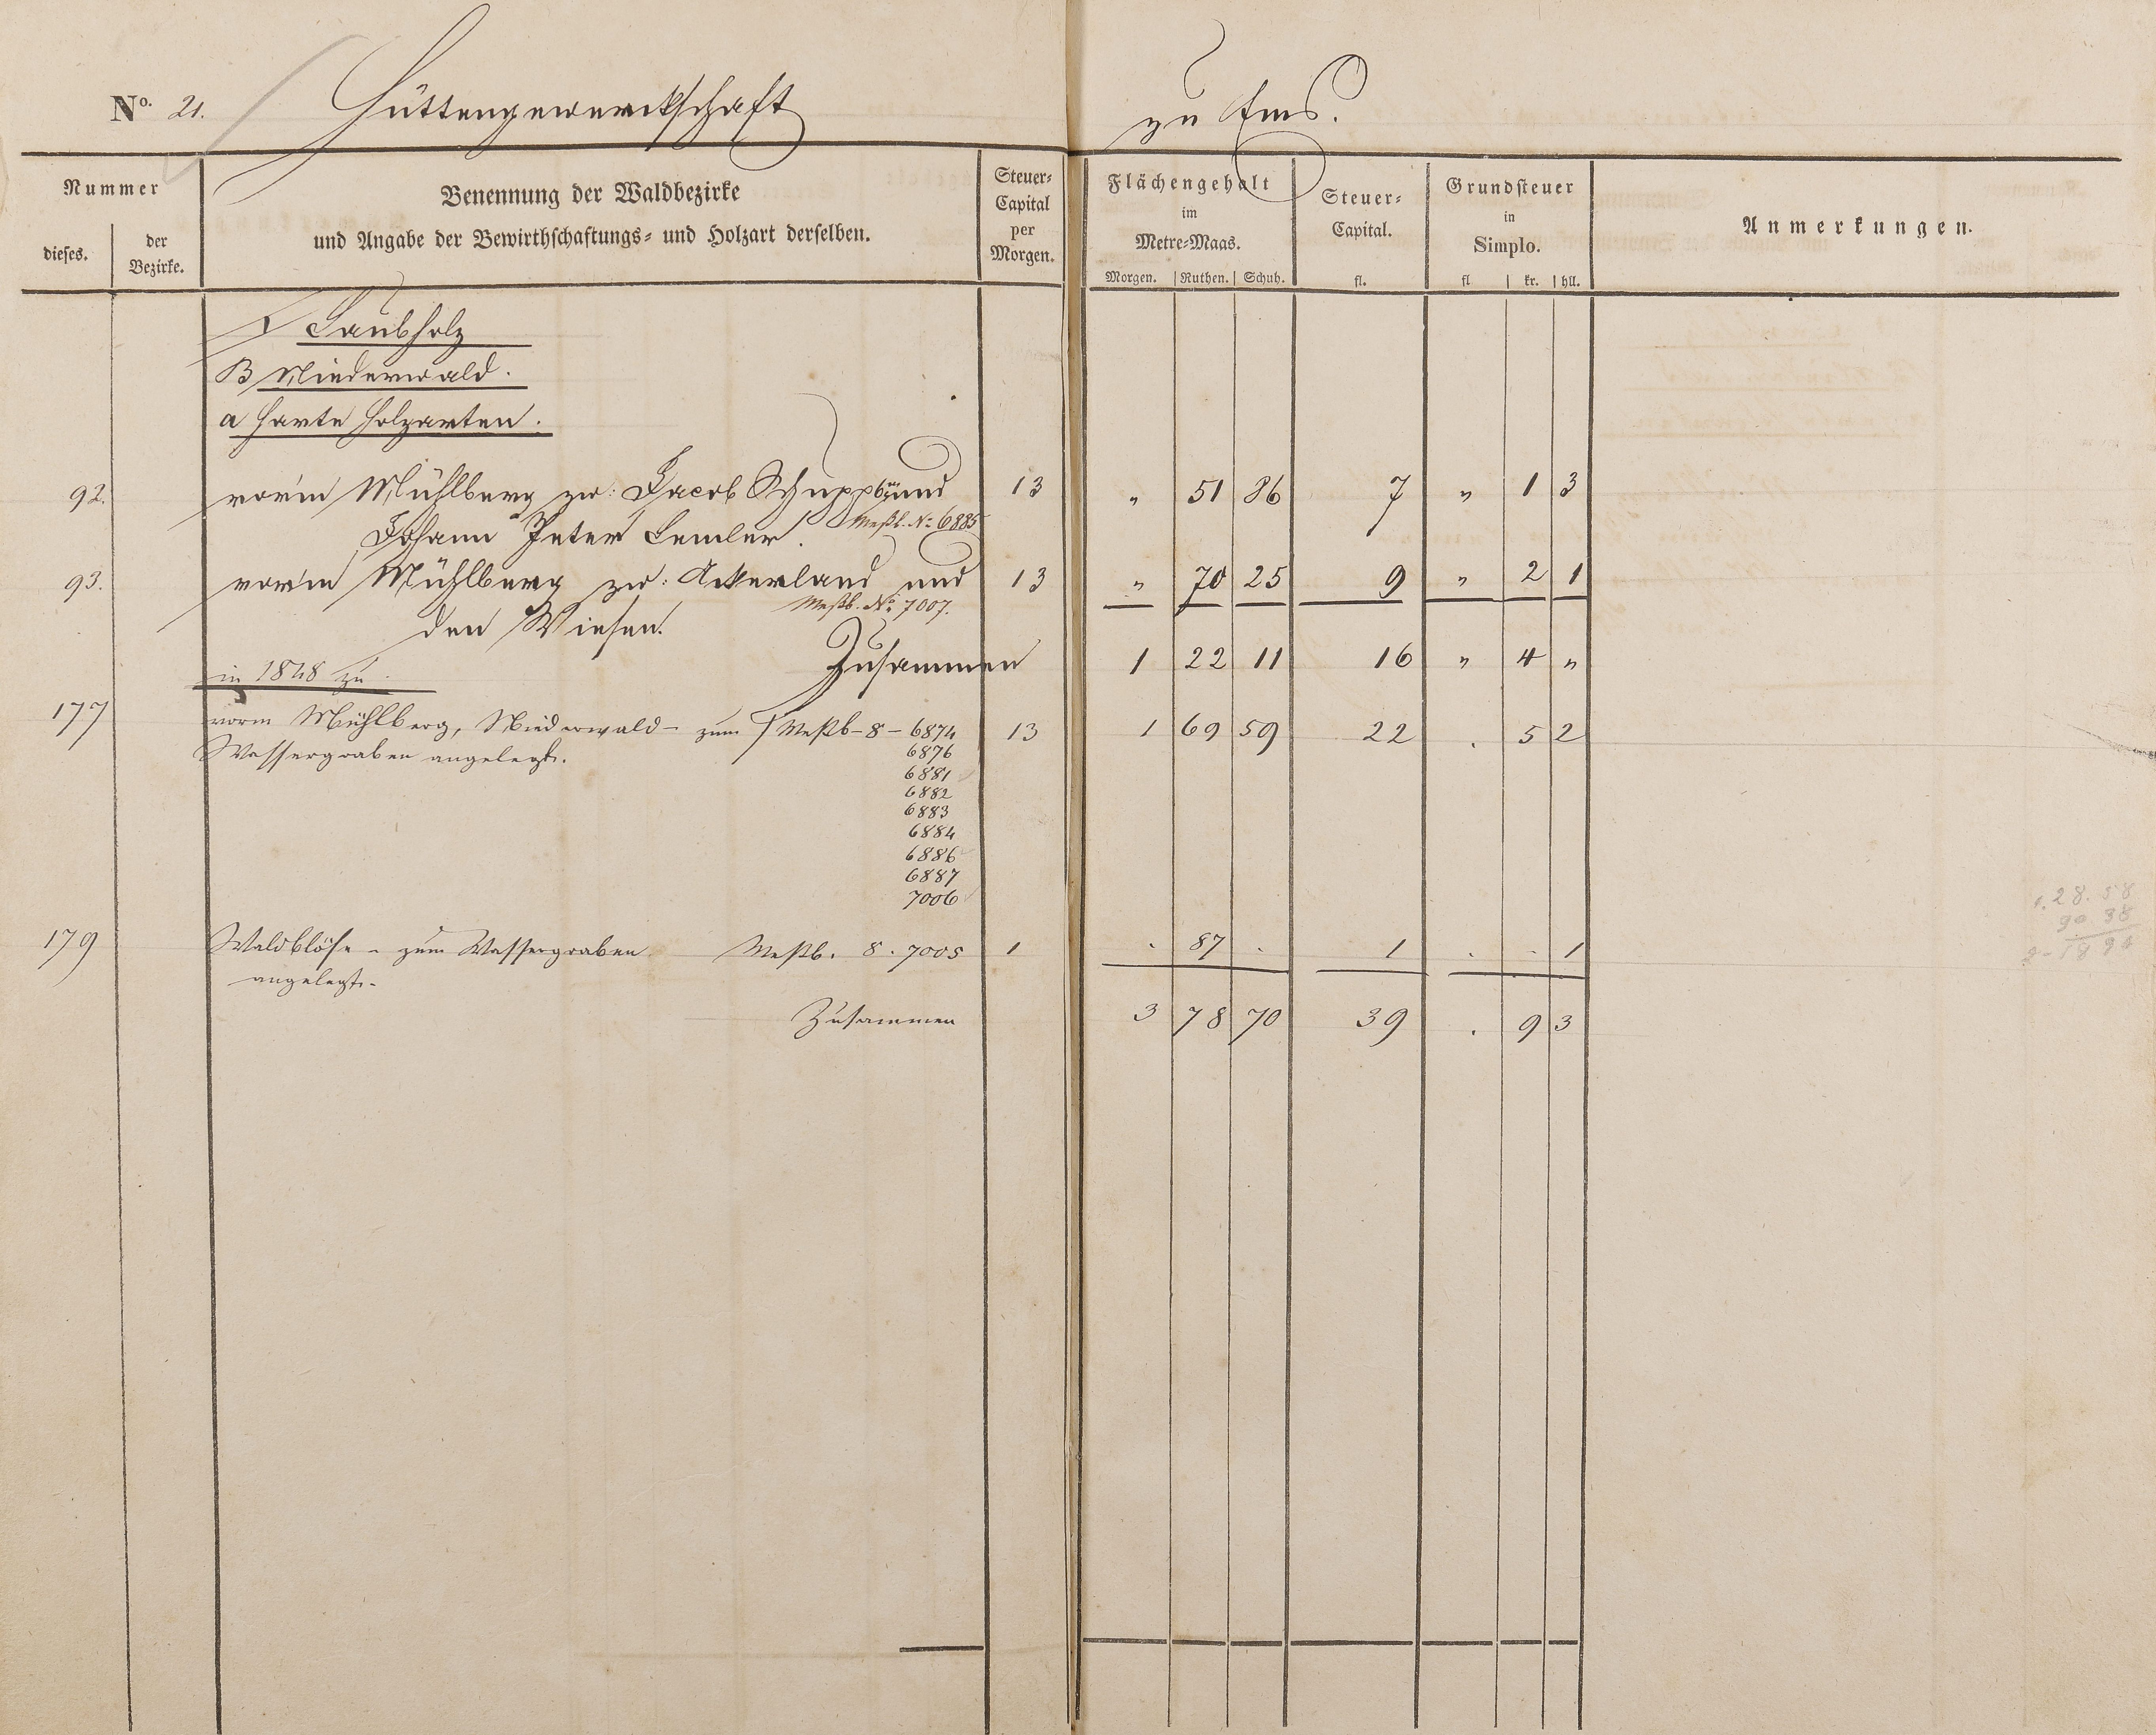 No. 21. Hüttengewerckschaft zu Ems.
Nummer
dieses. der Bezirke.
Benennung der Waldbezirke
und Angabe der Bewirthschaftungs- und Holzart derselben.
Steuer-
Capital
per
Morgen.
Flächengehalt
im
Metre-Maas.
Morgen. Ruthen. Schuh.
Steuer-
Capital.
fl.
Grundsteuer
in
Simplo.
fl kr. hll.
Anmerkungen.
Laubholz
B Niederwald.
a Harte Holzarten.
92. vorm Mühlberg zw: Jacob Schupp und 13 " 51 86 7 " 1 3
Meßb. No 6885
Johann Peter Lemler.
93. vorm Mühlberg zw: Ackerland und 13 " 70 25 9 " 2 1
Meßb. No 7007.
den Wiesen.
Zusammen 1 22 11 16 " 4 "
in 1848 zu
177 vorm Mühlberg, Niederwald - zum Meßb - 8 - 6874 13 1 69 59 22 . 5 2
Wassergraben angelegt. 6876
6881
6882
6883
6884
6886
6887
7006
179 Waldblöße - zum Wassergraben Meßb. 8. 7005 1 . 87 . 1 . . 1
angelegt.-
Zusammen 3 78 70 39 . 9 3